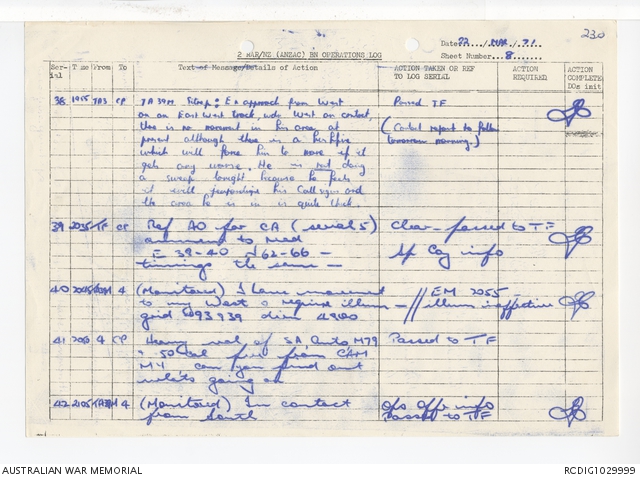 230
Date: 22 / MAR / 71
2 RAR/NZ (ANZAC) BN OPERATIONS LOG
Sheet Number 8
Ser- ial Time From To Text of Message/Details of Action ACTION TAKEN OR REF TO LOG SERIAL ACTION REQUIRED ACTION COMPLETE DOs init
38 1955 CP En approach from West Passed TF
on an East West track, West on contact,
there is no movement in his area at (Contact report to follow
present although there is a tomorrow morning.)
which will force him to move if it
gets any worse. He is not doing
a sweep tonight because he feels
it will his Call signs and
the area he is in is quite thick.
39 2035 TF CP Ref AO for CA (serial 5) Clear - passed to TF
amendment to read
E 39-40 62-66 - Sp Coy info
timings the same -
40 2045 4 (Monitored) I have movement EM 2055 -
to my West & require illum - // illum ineffective
grid 593939 dirn 4800
41 4 CP Heavy vol of SA Auto M79 Passed to TF
& .50 cal fire from CAM
MY can you find out
what's going on
42 2105 4 (Monitored) In contact Ops Offr info
from South Passed to TF
AUSTRALIAN WAR MEMORIAL
RCDIG1029999